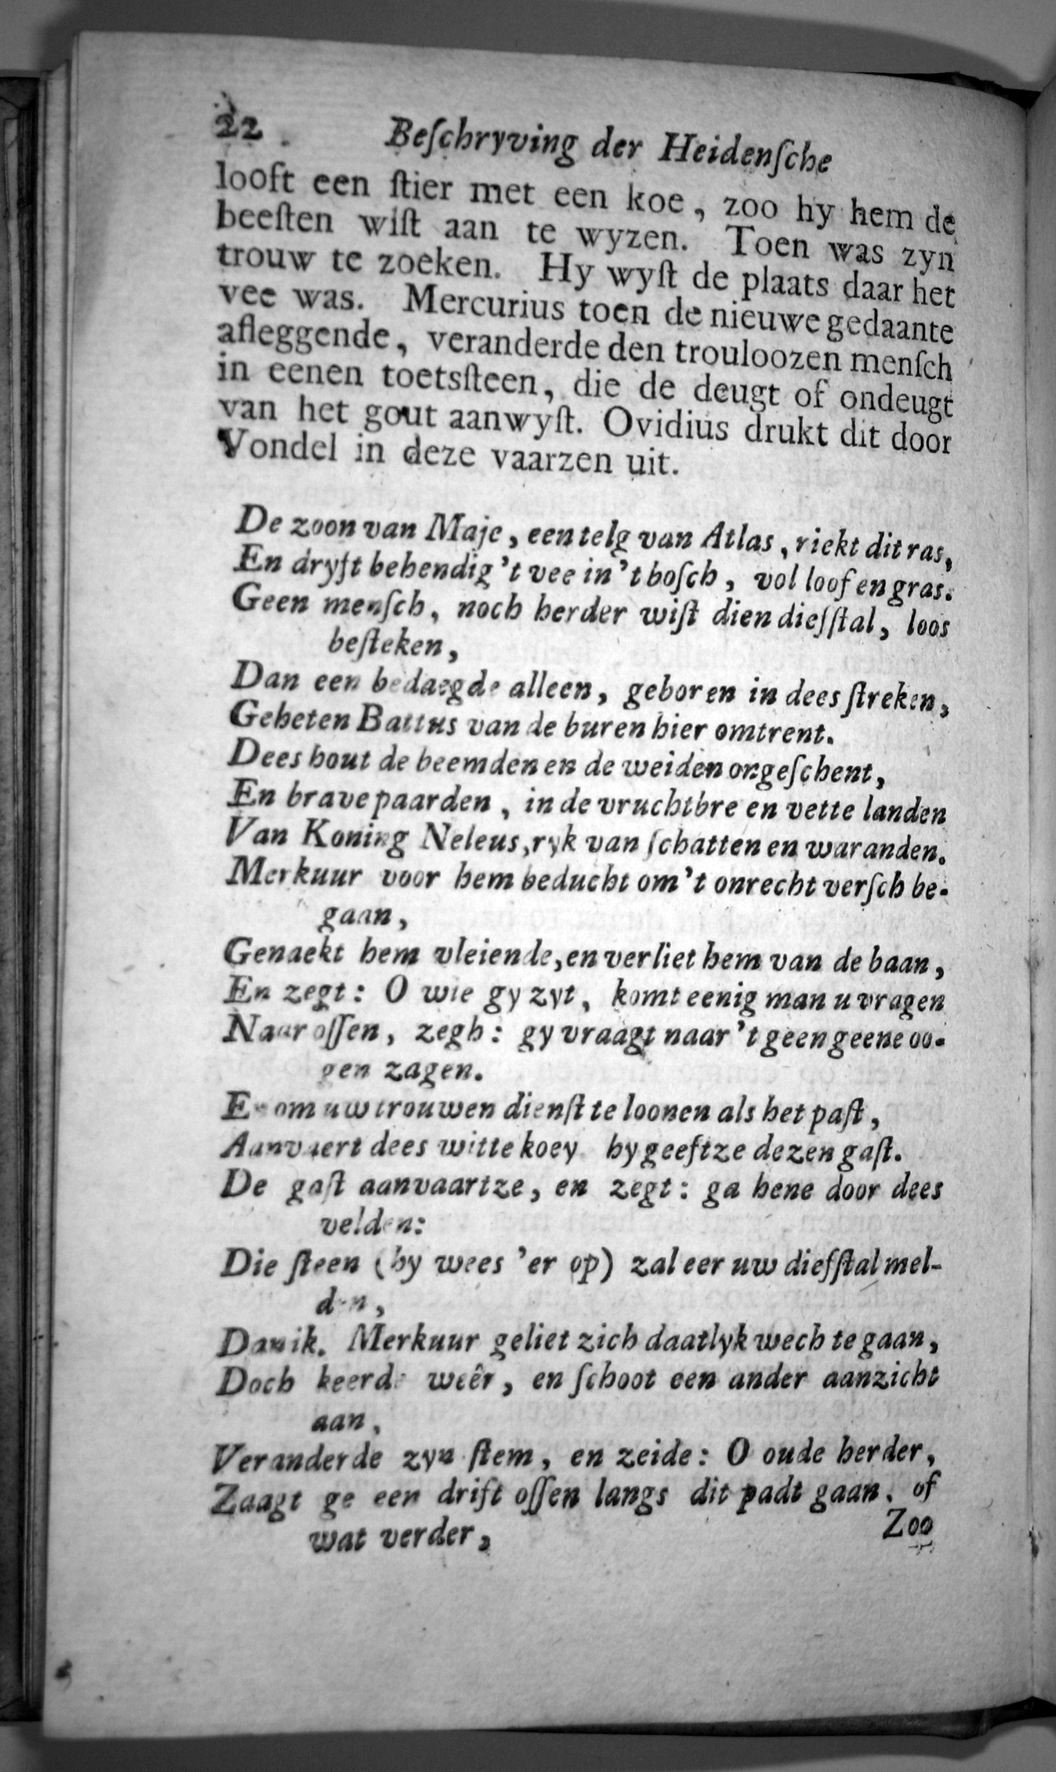 22 Beſchryving der Heidenſche
looft een ſtier met een koe, zoo hy hem de
beeſten wiſt aan te wyzen. Toen was zyn
trouw te zoeken. Hy wyſt de plaats daar het
vee was. Mercurius toen de nieuwe gedaante
afleggende, veranderde den trouloozen menſch
in eenen toetsſteen, die de deugt of ondeugt
van het gout aanwyſt. Ovidius drukt dit door
Vondel in deze vaarzen uit.
De zoon van Maje, een telg van Atlas, riekt dit ras,
En dryft behendig 't vee in 't boſch, vol loof en gras.
Geen menſch, noch herder wiſt dien diefſtal, loos
beſteken,
Dan een bedaegde alleen, geboren in dees ſtreken,
Geheten Battus van de buren hier omtrent.
Dees hout de beemden en de weiden ongeſchent,
En brave paarden, in de vruchtbre en vette landen
Van Koning Neleus, ryk van ſchatten en waranden.
Merkuur voor hem beducht om 't onrecht verſch be-
gaan,
Genaekt hem vleiende, en verliet hem van de baan,
En zegt: O wie gy zyt, komt eenig man u vragen
Naar oſſen, zegh: gy vraagt naar 't geen geene oo-
gen zagen.
En om uw trouwen dienſt te loonen als het paſt,
Aanvaert dees witte koey hy geeftze dezen gaſt.
De gaſt aanvaartze, en zegt: ga hene door dees
velden:
Die ſteen (hy wees 'er op) zal eer uw diefſtal mel-
den,
Dan ik. Merkuur geliet zich daatlyk wech te gaan,
Doch keerde weêr, en ſchoot een ander aanzicht
aan,
Veranderde zyn ſtem, en zeide: O oude herder,
Zaagt ge een drift oſſen langs dit padt gaan, of
wat verder,
Zoo